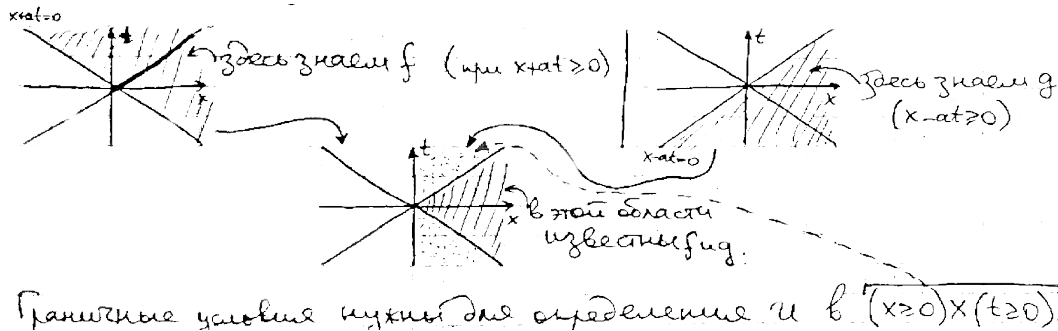 x+at=0
t
x
здесь знаем f (при x+at≥0)
t
x
здесь знаем g
(x-at≥0)
x-at=0
t
x
в этой области
известны f и g.
Граничные условия нужны для определения u в (x≥0)×(t≥0)